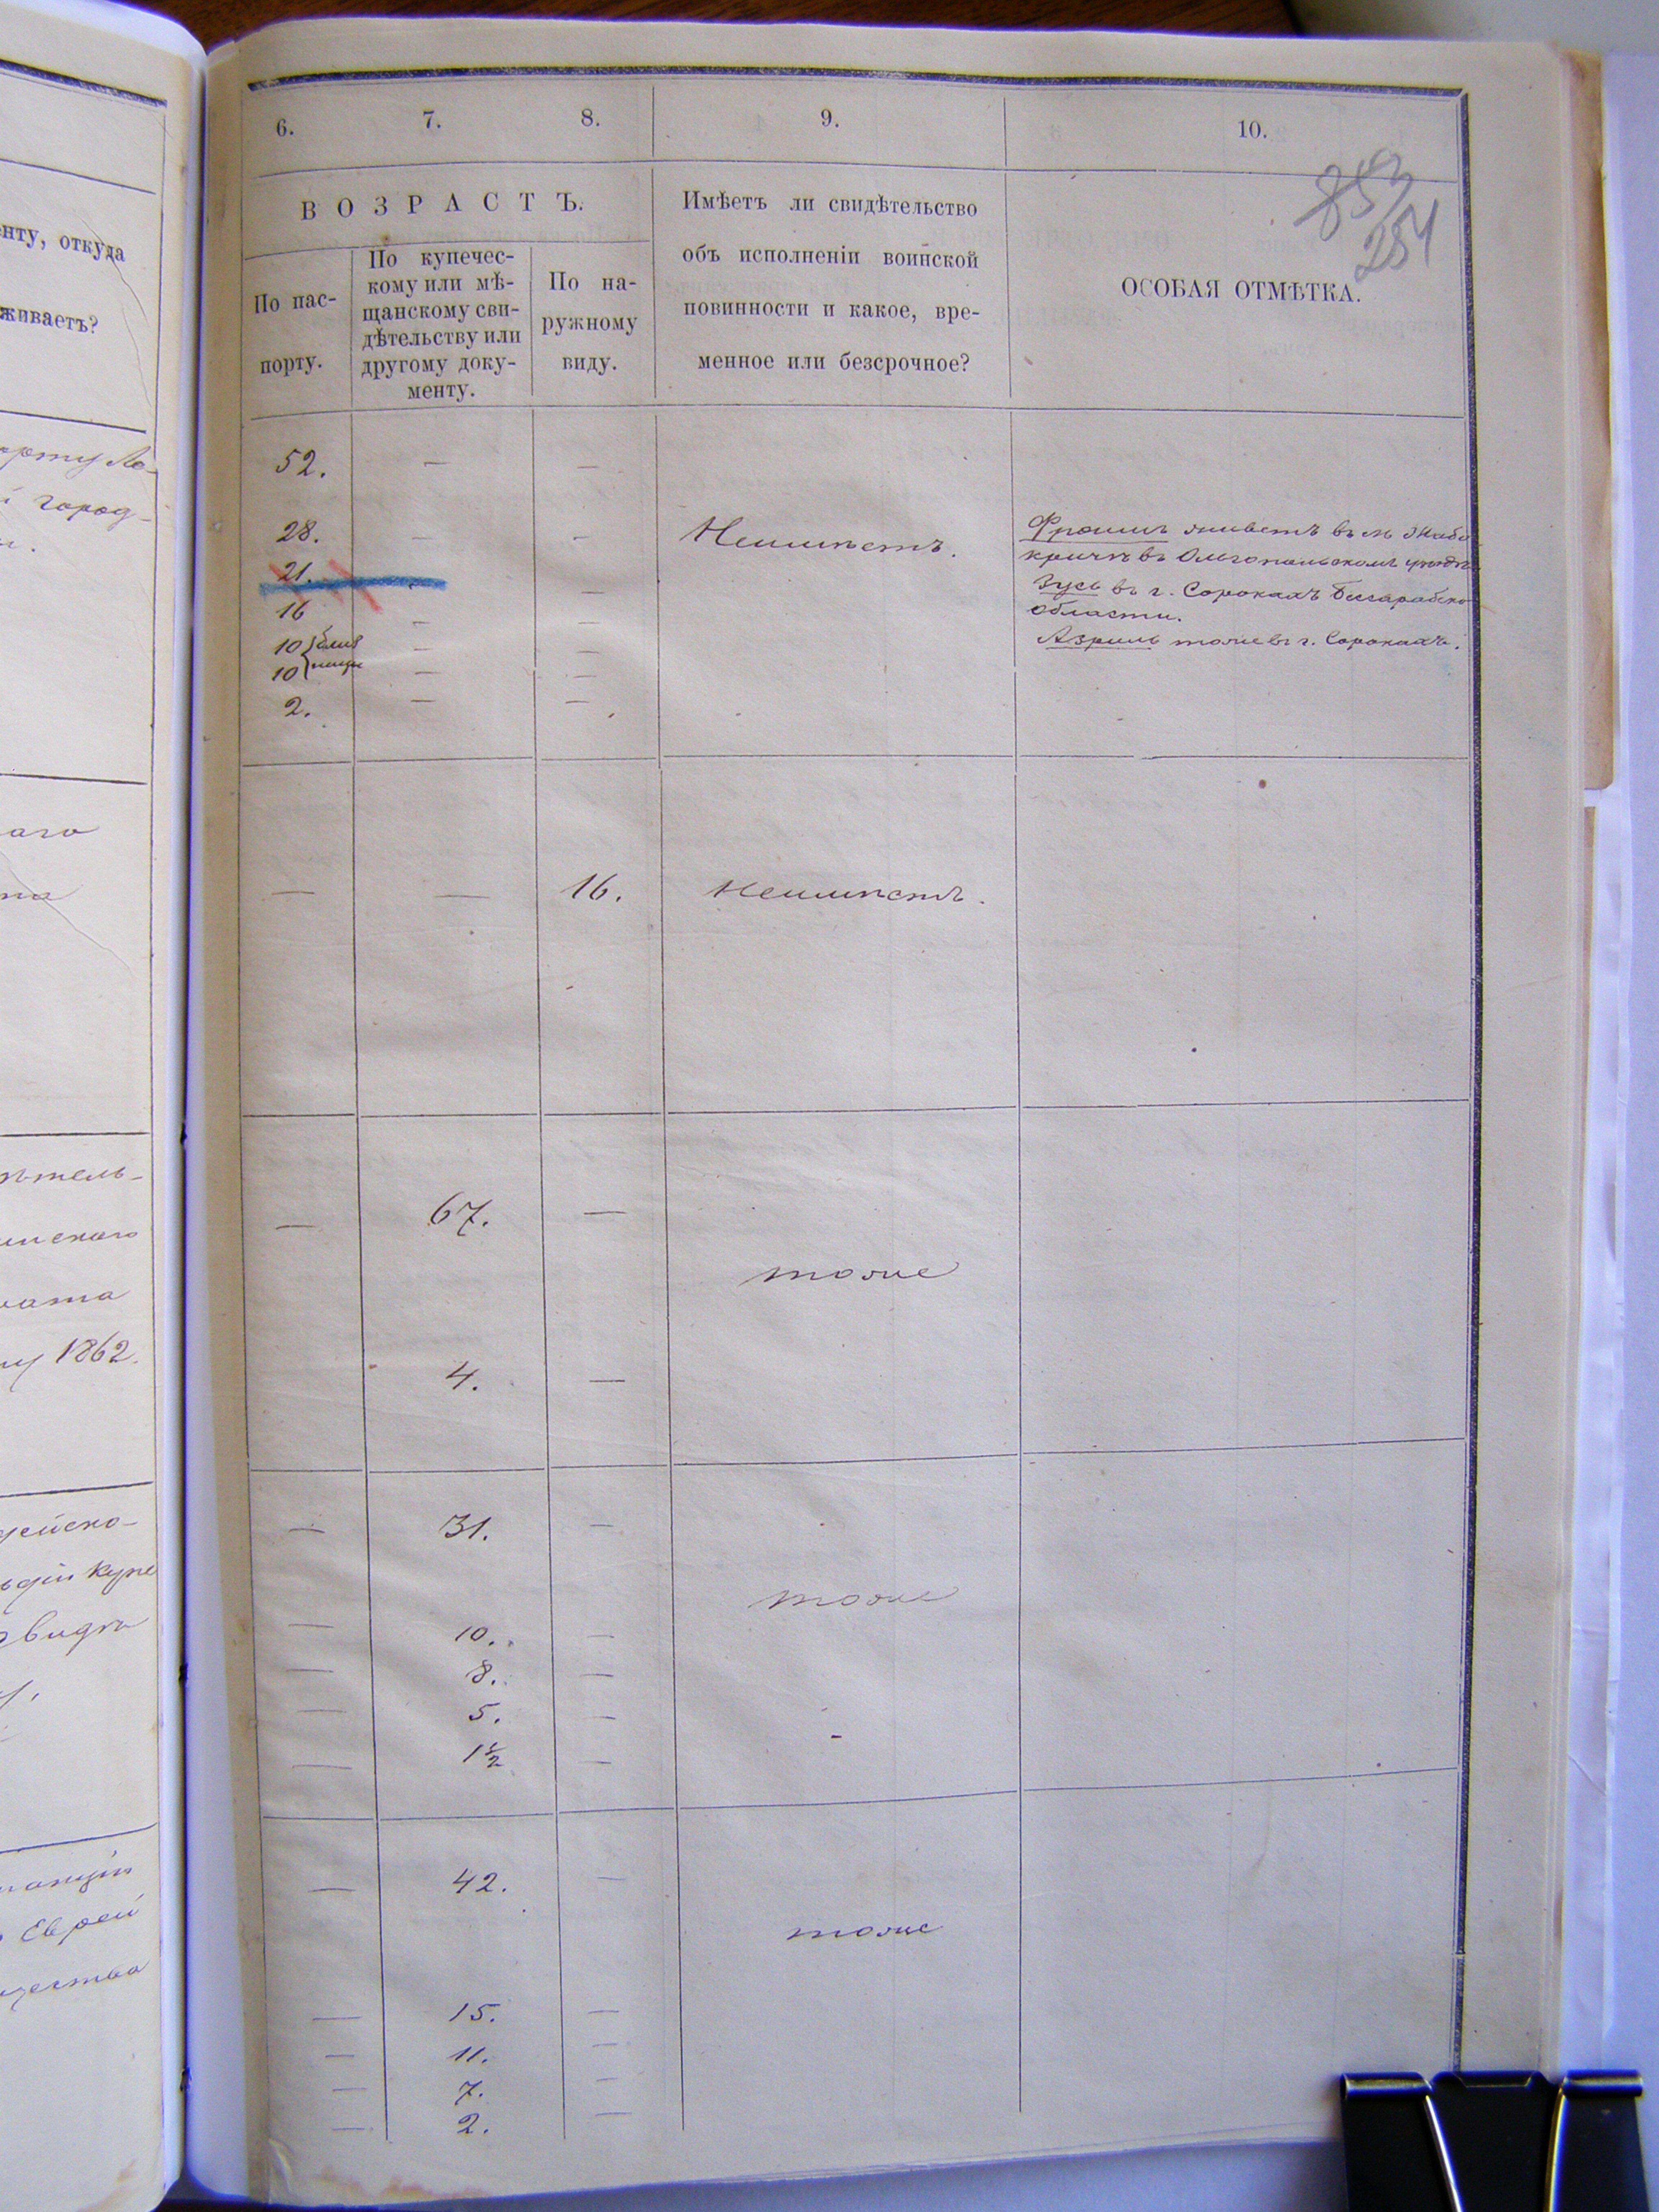 нту, откуда
живаетъ?
город-
аго
1862.
Еврей
6. 7. 8. 9. 10.
853
254
ВОЗРАСТЪ.
По пас-
порту.
По купечес-
кому или мѣ-
щанскому сви-
дѣтельству или
другому доку-
менту.
По на-
ружному
виду.
Имѣетъ ли свидѣтельство
объ исполненіи воинской
повинности и какое, вре-
менное или безсрочное?
ОСОБАЯ ОТМѢТКА.
52. — —
28. — —
21. —
16 — —
10 близ — —
10 нецы — —
2. — —
Неимѣетъ.
Фроимъ живетъ въ м Жабо
кричѣ въ Ольгопольскомъ уѣздѣ
Зусь въ г. Сорокахъ Бессарабско
области.
Азриль тоже въ г. Сорокахъ.
— — 16. Неимѣетъ.
— 67. —
тоже
4. —
— 31. —
тоже
— 10. —
— 8. —
— 5. —
— 1½ —
— 42. —
тоже
— 15. —
— 11. —
— 7. —
— 2. —